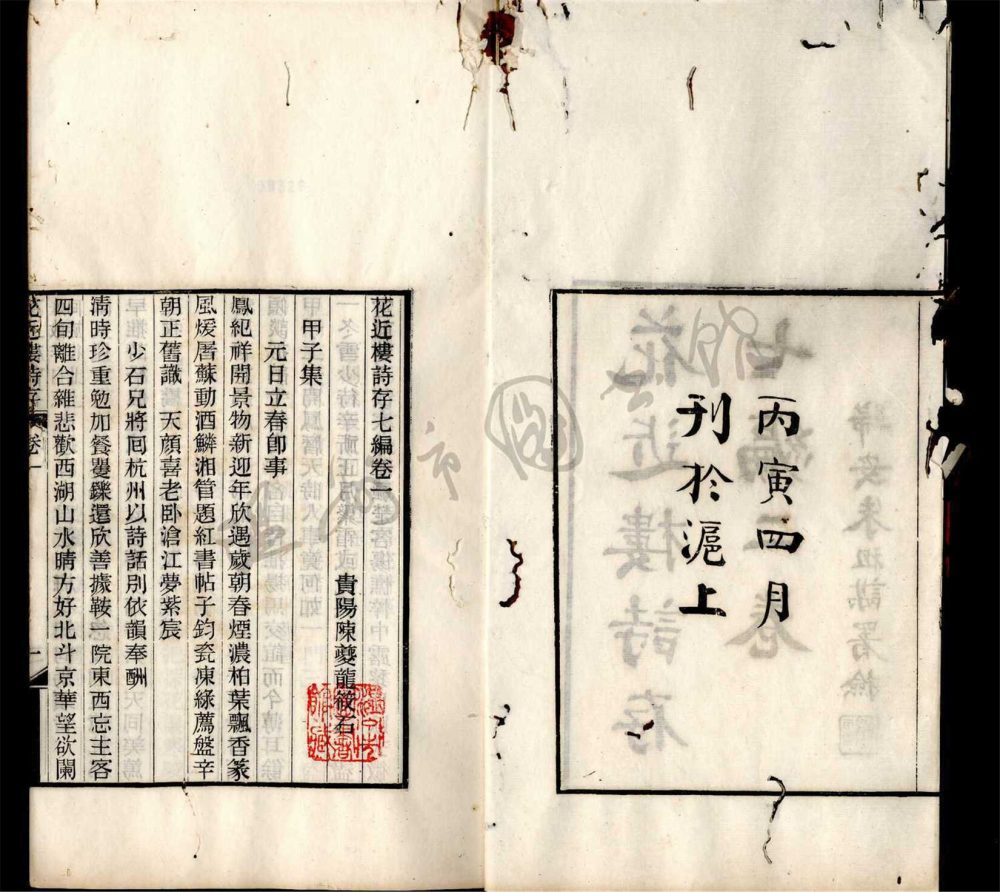 丙寅四月
刊於滬上
花近樓詩存七編卷一
貴陽陳夔龍筱石
甲子集
元日立春卽事
鳳紀祥開景物新迎年欣遇歲朝春煙濃柏葉飄香篆
風煖屠蘇動酒鱗湘管題紅書帖子鈞瓷凍綠薦盤辛
朝正舊識 天顏喜老卧滄江夢紫宸
少石兄將囘杭州以詩話別依韻奉酬
淸時珍重勉加餐矍鑠還欣善據鞍一院東西忘主客
四旬離合雜悲歡西湖山水晴方好北斗京華望欲闌
花近樓詩存 卷一
一